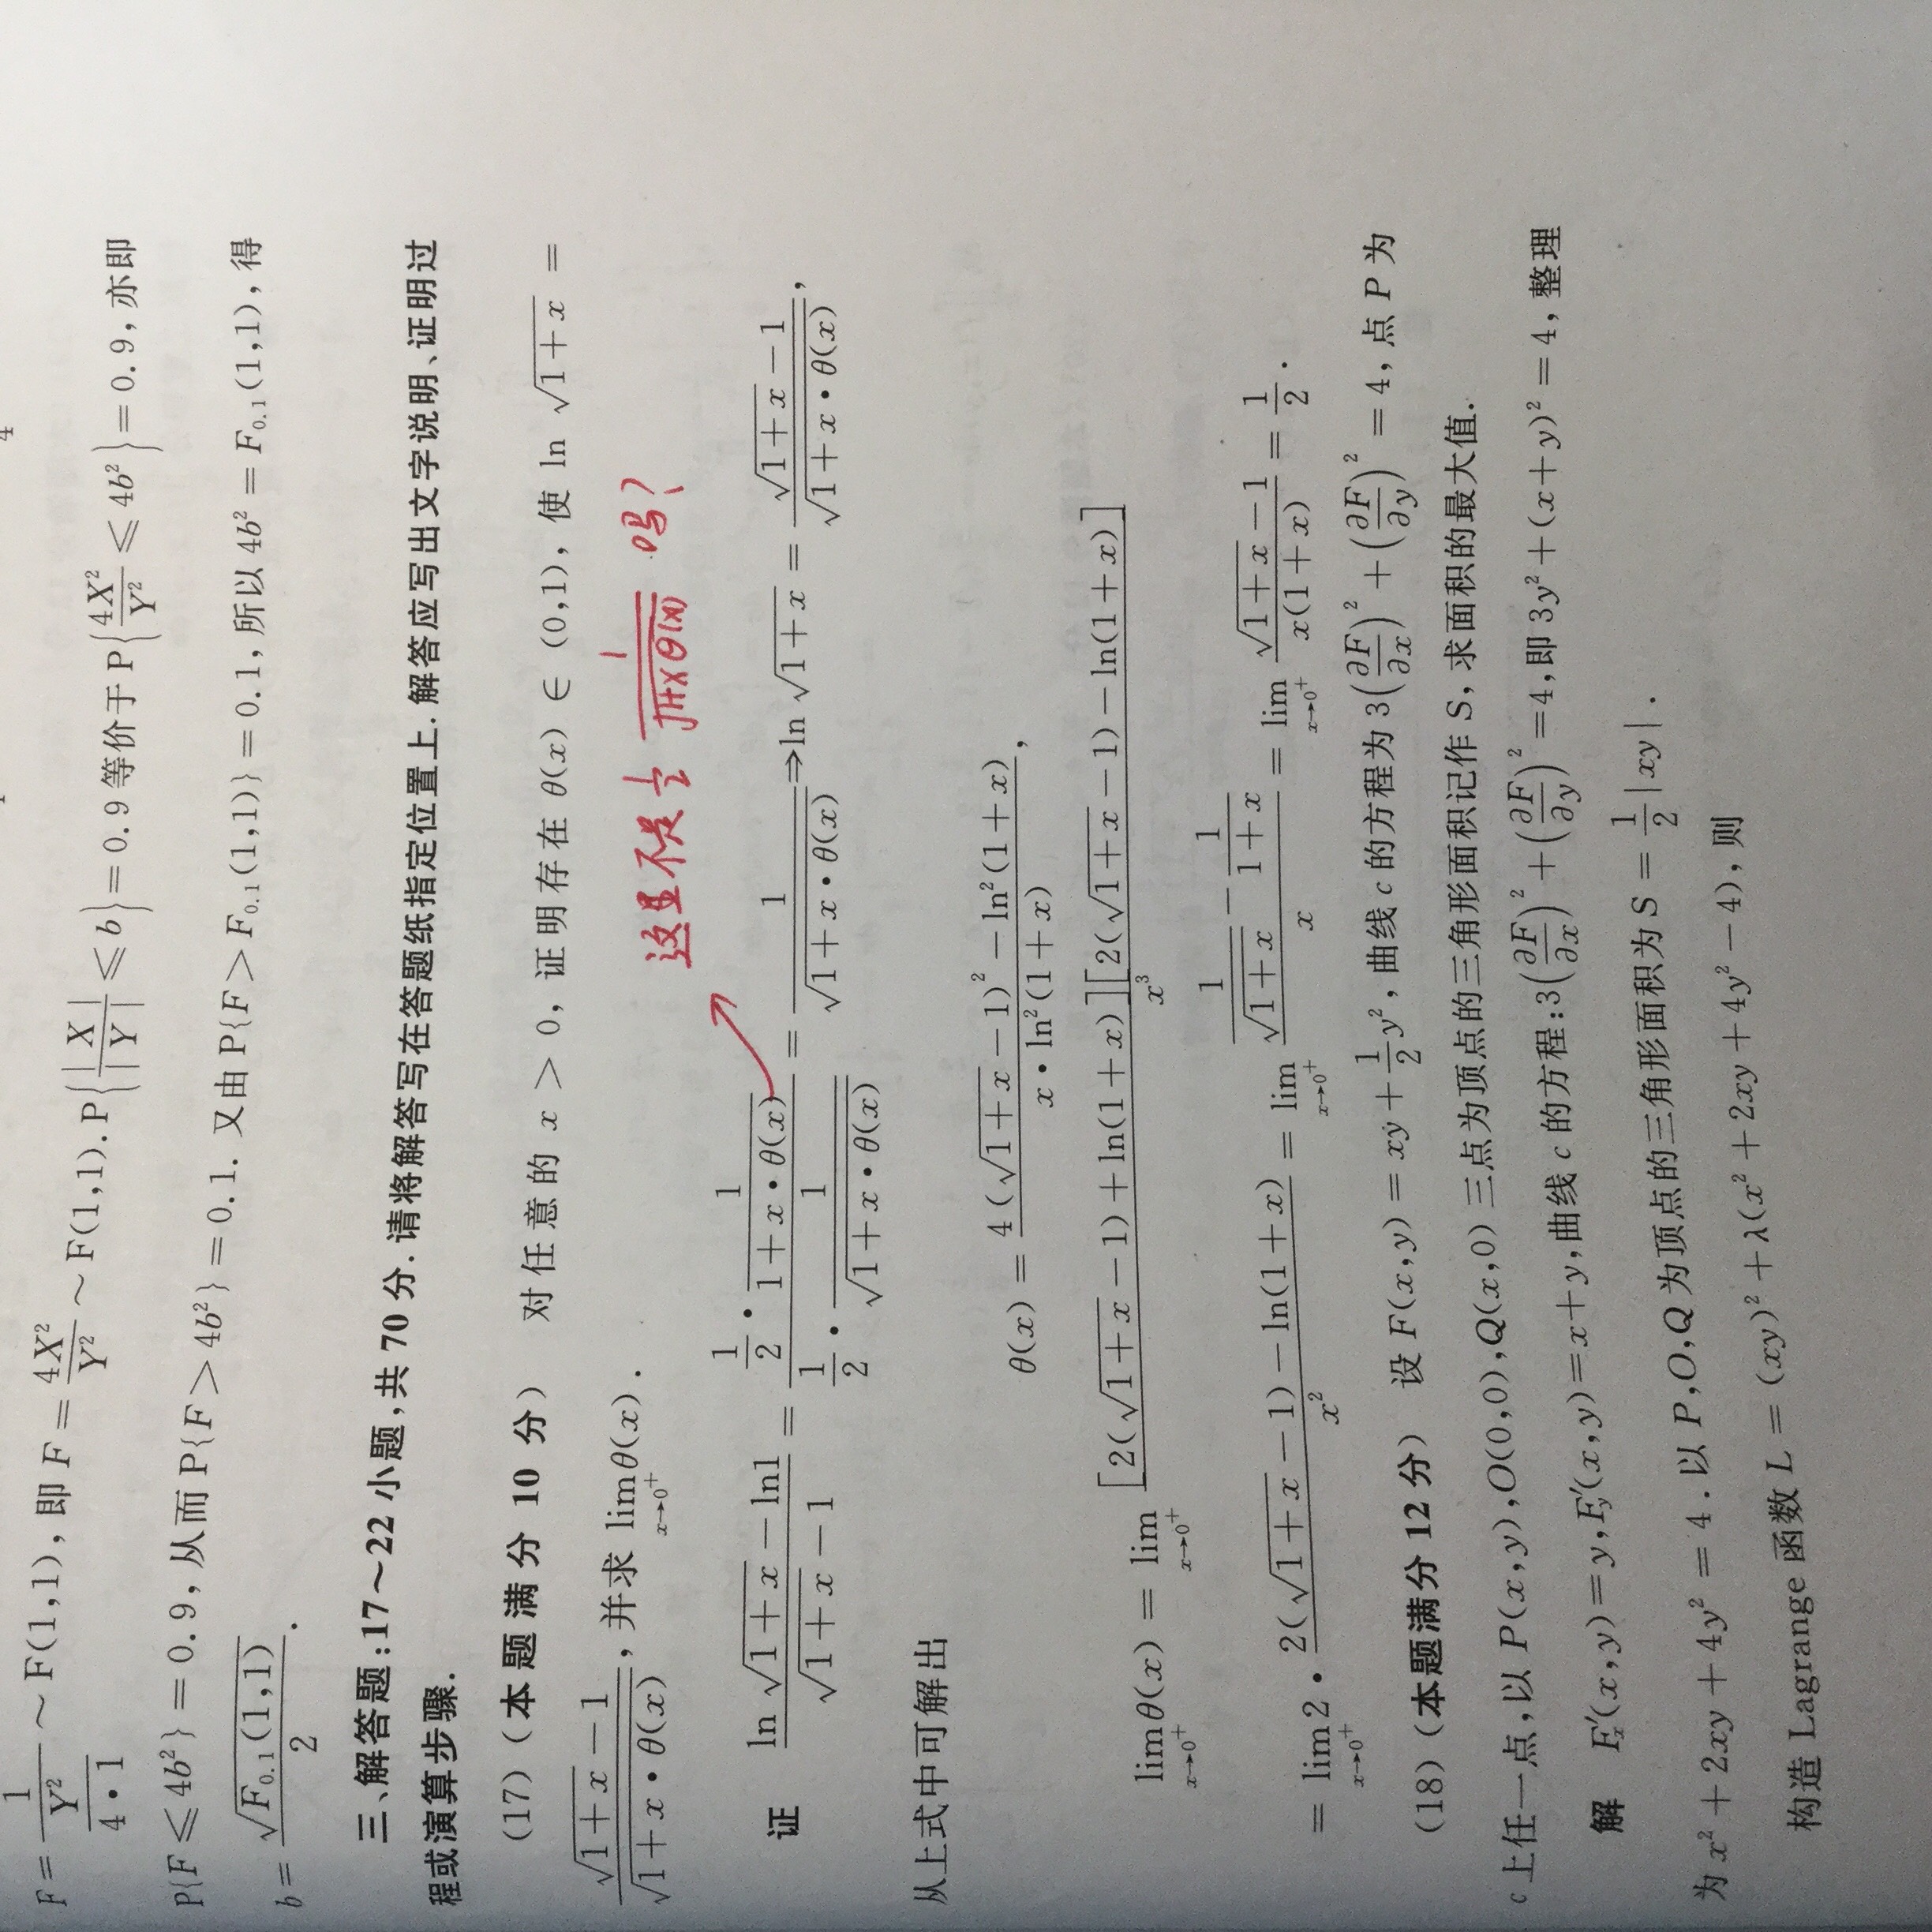 F = \frac{\frac{1}{Y^2}}{4·1} ~ F(1,1), 即 F = \frac{4X^2}{Y^2} ~ F(1,1). P{|\frac{X}{Y}| ≤ b} = 0.9 等价于 P{\frac{4X^2}{Y^2} ≤ 4b^2} = 0.9, 亦即
P{F ≤ 4b^2} = 0.9, 从而 P{F > 4b^2} = 0.1. 又由 P{F > F_{0.1}(1,1)} = 0.1, 所以 4b^2 = F_{0.1}(1,1), 得
b = \frac{\sqrt{F_{0.1}(1,1)}}{2}.
三、解答题:17~22 小题,共 70 分.请将解答写在答题纸指定位置上.解答应写出文字说明、证明过
程或演算步骤.
(17) (本题满分 10 分) 对任意的 x > 0, 证明存在 θ(x) ∈ (0,1), 使 ln \sqrt{1+x} =
\frac{\sqrt{1+x}-1}{\sqrt{1+x·θ(x)}}, 并求 \lim_{x→0^+} θ(x).
这里不是 \frac{1}{2} \frac{1}{\sqrt{1+xθ(x)}} 吗?
证 \frac{ln\sqrt{1+x}-ln1}{\sqrt{1+x}-1} = \frac{\frac{1}{2}·\frac{1}{1+x·θ(x)}}{\frac{1}{2}·\frac{1}{\sqrt{1+x·θ(x)}}} = \frac{1}{\sqrt{1+x·θ(x)}} ⇒ ln\sqrt{1+x} = \frac{\sqrt{1+x}-1}{\sqrt{1+x·θ(x)}},
从上式中可解出
θ(x) = \frac{4(\sqrt{1+x}-1)^2-ln^2(1+x)}{x·ln^2(1+x)},
\lim_{x→0^+} θ(x) = \lim_{x→0^+} \frac{[2(\sqrt{1+x}-1)+ln(1+x)][2(\sqrt{1+x}-1)-ln(1+x)]}{x^3}
= \lim_{x→0^+} 2·\frac{2(\sqrt{1+x}-1)-ln(1+x)}{x^2} = \lim_{x→0^+} \frac{\frac{1}{\sqrt{1+x}}-\frac{1}{1+x}}{x} = \lim_{x→0^+} \frac{\sqrt{1+x}-1}{x(1+x)} = \frac{1}{2}.
(18) (本题满分 12 分) 设 F(x,y) = xy + \frac{1}{2}y^2, 曲线 c 的方程为 3(\frac{∂F}{∂x})^2 + (\frac{∂F}{∂y})^2 = 4, 点 P 为
c 上任一点,以 P(x,y),O(0,0),Q(x,0) 三点为顶点的三角形面积记作 S, 求面积的最大值.
解 F_x'(x,y)=y,F_y'(x,y)=x+y,曲线 c 的方程:3(\frac{∂F}{∂x})^2+(\frac{∂F}{∂y})^2=4,即 3y^2+(x+y)^2=4,整理
为 x^2+2xy+4y^2=4.以 P,O,Q 为顶点的三角形面积为 S = \frac{1}{2}|xy|.
构造 Lagrange 函数 L = (xy)^2 + λ(x^2+2xy+4y^2-4), 则